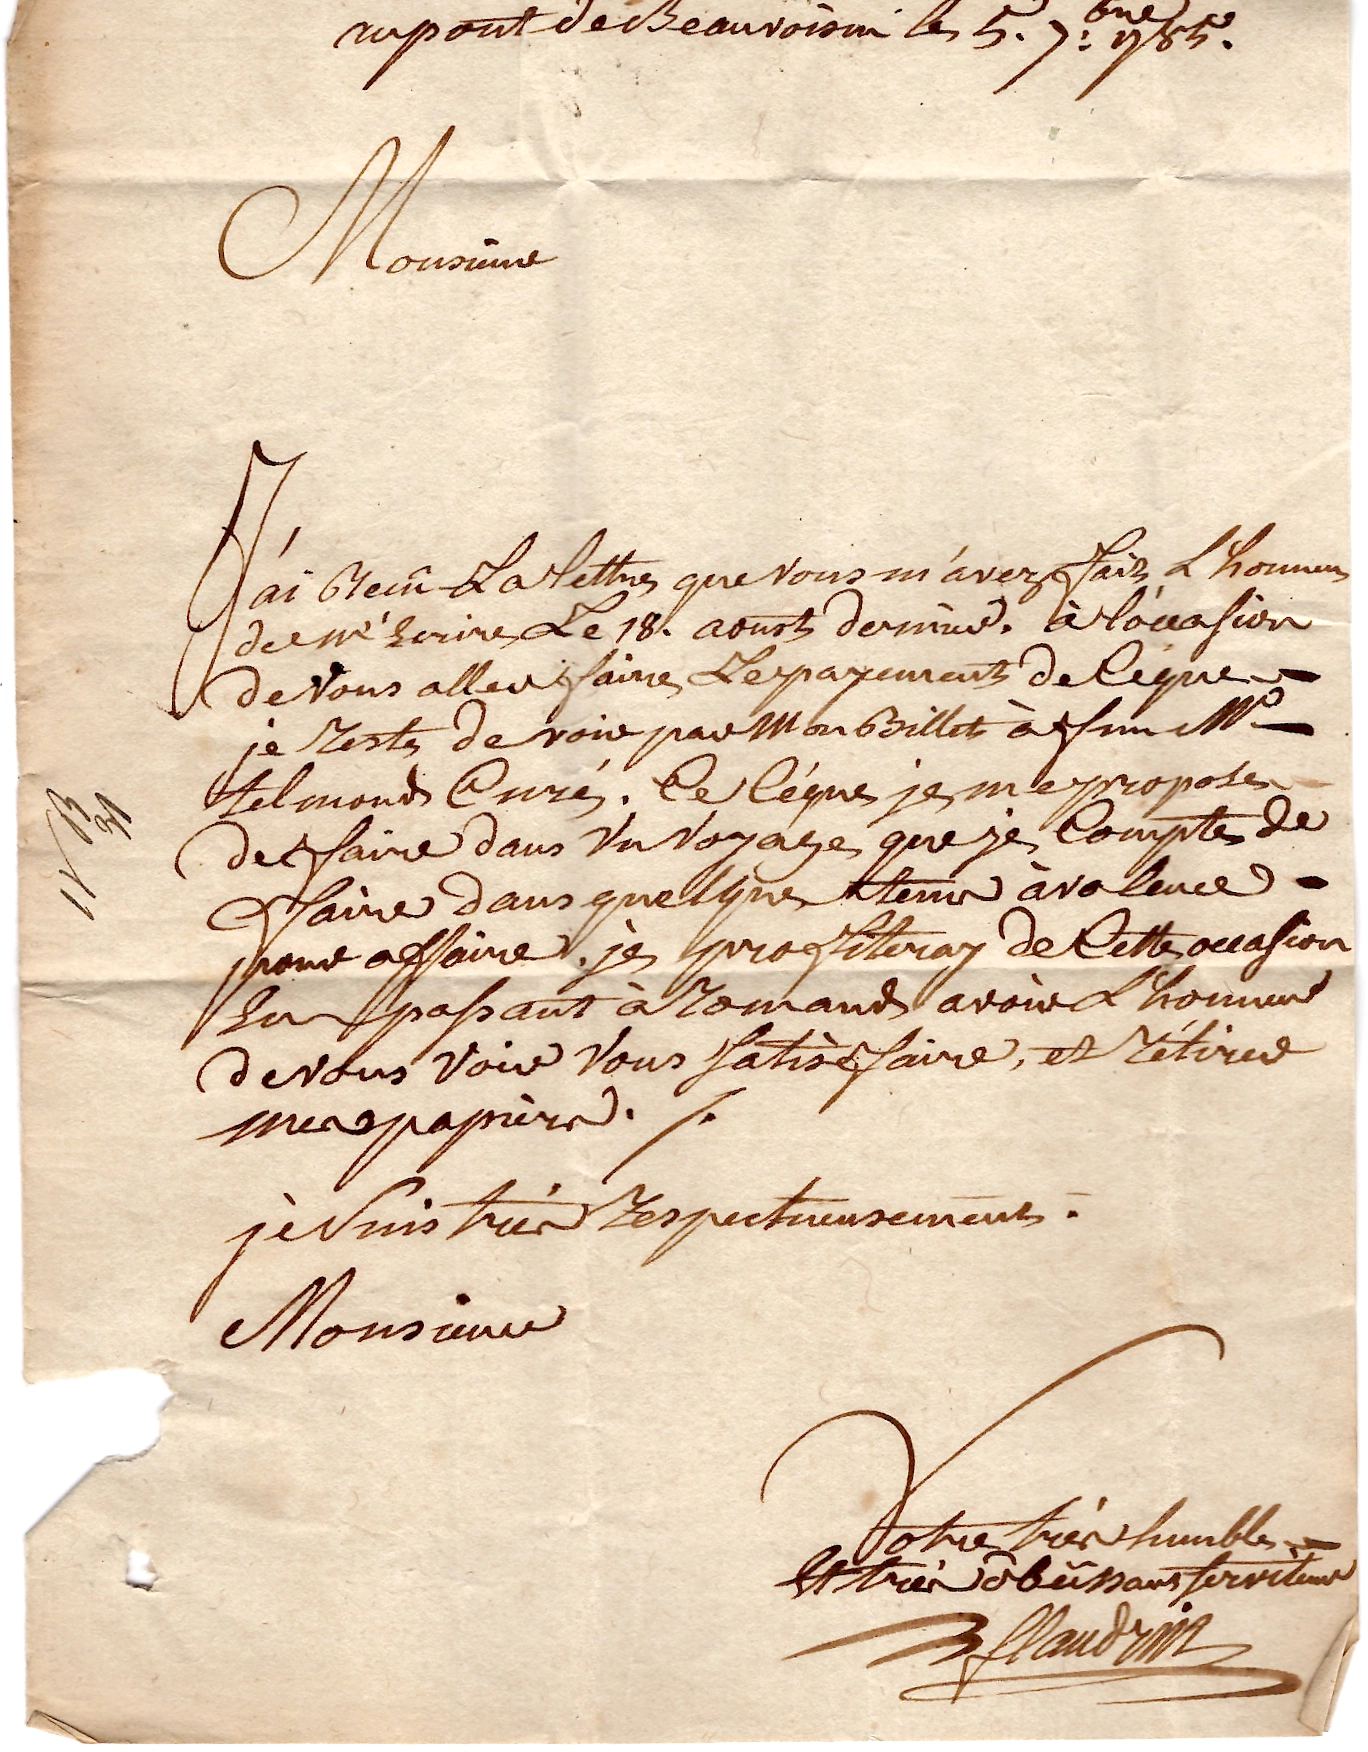 au pont de Beauvoisin le 5. 7.bre 1785.
Monsieur
J'ai Reçû La lettre que vous m'avez fait L'honneur
de m'Ecrire Le 18. aoust dernier. à l'occasion
de vous aller faire Le payement de Ceque
je reste devoir par mon Billet à feu Mr
telmond Curé. Ce Céque je me propose
de faire dans un voyage que je Compte de
faire dans quelque tems à valence
pour affaire. je profiteray de Cette occasion
En passant à romans avoir L'honneur
de vous voir vous satisfaire, et rétirer
mes papiers. /.
je suis très respectueusement.
Monsieur
Votre très humble
Et très obéissant serviteur
flandrin